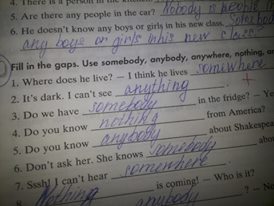 5. Are there any people in the car? Nobody is people
6. He doesn't know any boys or girls in his new class.
any boys or girls in his new class
Fill in the gaps. Use somebody, anybody, anywhere, nothing,
1. Where does he live? – I think he lives somiwhere
2. It's dark. I can't see anything.
3. Do we have somebody in the fridge? – Ye
4. Do you know nothing from America?
5. Do you know anybody about Shakespea
6. Don't ask her. She knows somebody about
7. Sssh! I can't hear somewhere.
Nothing is coming! – Who is it?
anybody ? – No